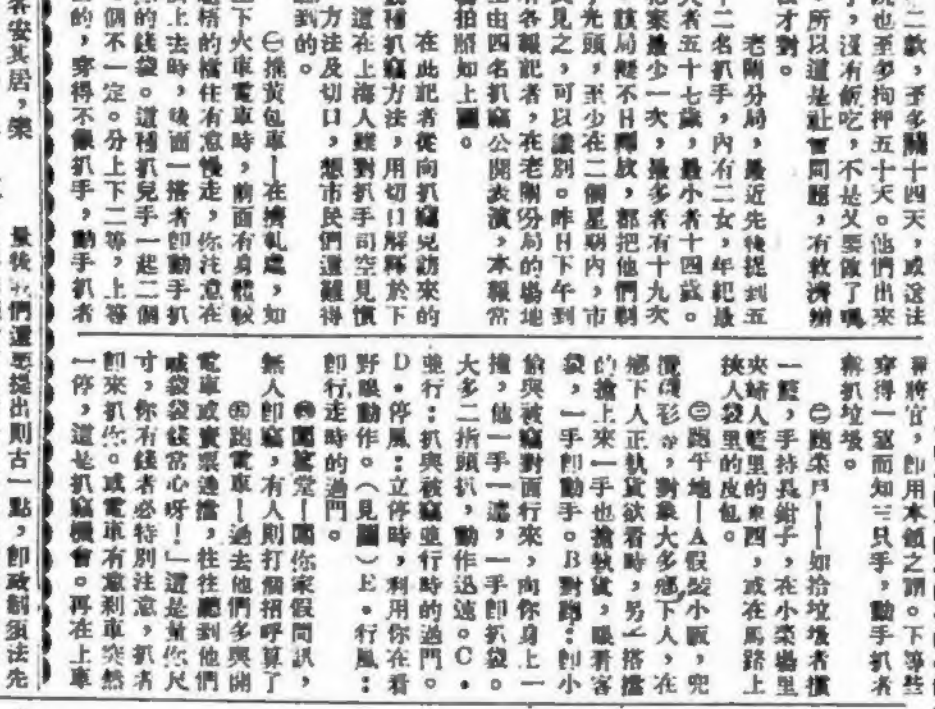 二款，至多關十四天，或送法
院也至多拘押五十天。他們出來
，沒有飯吃，不是又要做了嗎
所以這是社會問題，有救濟辦
才對。
老閘分局，最近先後捉到五
十二名扒手，內有二女，年紀最
大者五十七歲，最小者十四歲。
犯案最少一次，最多者有十九次
該局礙不日釋放，都把他們剃
光頭，至少在二個星期內，市
民見之，可以識別。昨日下午到
各報記者，在老閘分局的場地
由四名扒竊公開表演，本報當
拍照如上圖。
在此記者從向扒竊見訪來的
種扒竊方法，用切口解釋於下
道在上海人雖對扒手司空見慣
方法及切口，想市民們還難得
到的。
㊀推黃包車—在擠軋處，如
上下火車電車時，前面有身體較
梧的檔住有意慢走，你注意在
上去時，後面一搭者卽動手扒
的錢袋。這種扒兒手一起二個
個不一定。分上下二等，上等
的，穿得不像扒手，動手扒者
將官，卽用木頭之謂。下等些
穿得一望而知三只手，動手扒者
扒垃圾。
㊁跑菜戶——如拾垃圾者摜
一籃，手持長鉗子，在小菜場里
夾婦人籃里的東西，或在馬路上
挾人袋里的皮包。
㊂跑平地——A假裝小販，兜
彩，對象大多鄉下人，在
鄉下人正執貨欲看時，另一搭擋
的搶上來一手也搶執貨，眼看客
袋，一手卽動手。B對跑：卽小
偷與被竊對面行來，向你身上一
撞，他一手一遮，一手卽扒袋。
大多二指頭扒，動作迅速。C．
並行：扒與被竊並行時的過門。
D．停風：立停時，利用你在看
野眼動作。（見圖）E．行風：
卽行走時的過門。
㊃闖堂—闖你家假問訊，
無人卽竊，有人則打個招呼算了
㊄跑電車—過去他們多與開
電車或賣票通擋，往往聽到他們
喊袋袋錢當心呀！」這是量你尺
寸，你有錢者必特別注意，扒者
卽來扒你。或電車有意剎車突然
一停，這是扒竊機會。再在上車
客安其居，樂
量後我們還要提出則古一點，卽政制須法先